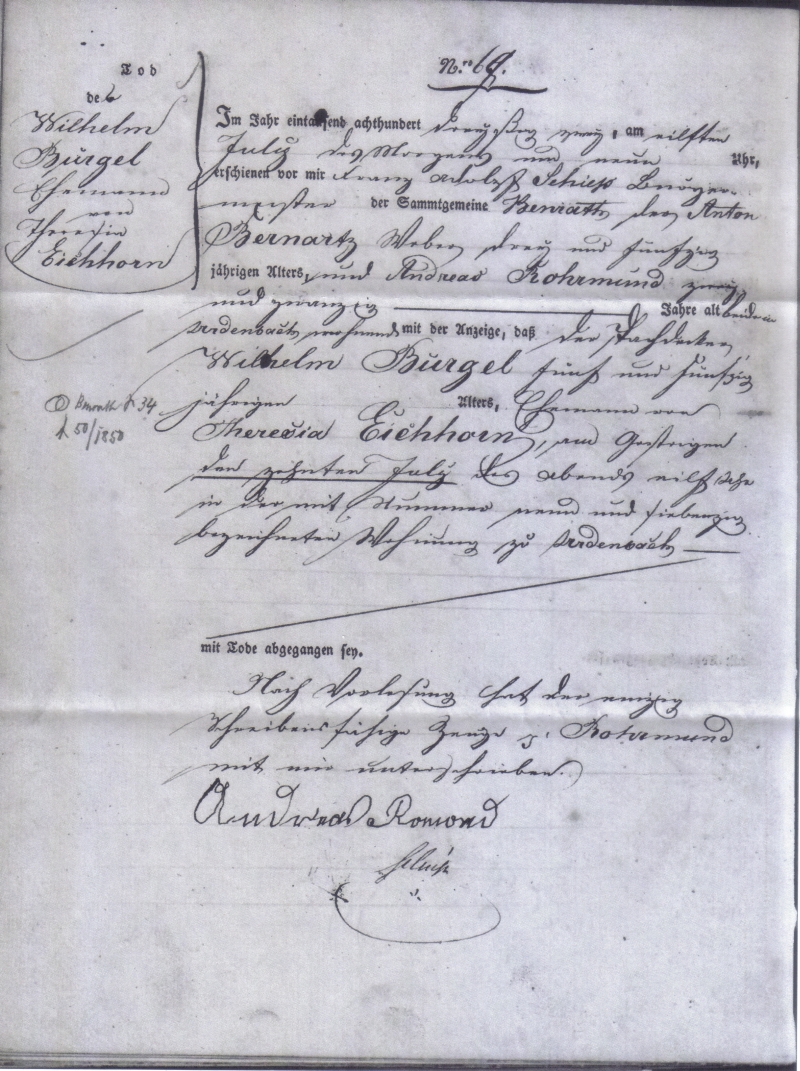 Tod
des
Wilhelm
Bürgel
Ehemann
von
Theresia
Eichhorn
N.ro 69.
Im Jahr eintausend achthundert dreyßig zwey, am eilften
July des Morgens um neun Uhr,
erschienen vor mir Franz Adolph Schieß Bürger-
meister der Sammtgemeine Benrath der Anton
Bernartz Weber drey und fünfzig
jährigen Alters, und Andreas Rohrmund zwey
und zwanzig Jahre alt beide in
Urdenbach wohnend mit der Anzeige, daß der Dachdecker
Wilhelm Bürgel fünf und fünfzig
jährigen Alters, Ehemann von
Theresia Eichhorn, am Gestrigen
den zehnten July des abends eilf Uhr
in der mit Nummer neun und siebenzig
bezeichneten Wohnung zu Urdenbach
mit Tode abgegangen sey.
Nach Vorlesung hat der einzig
Schreibensfähige Zeuge Rohrmund
mit mir unterschrieben.
Andreas Romond
34
50/1850